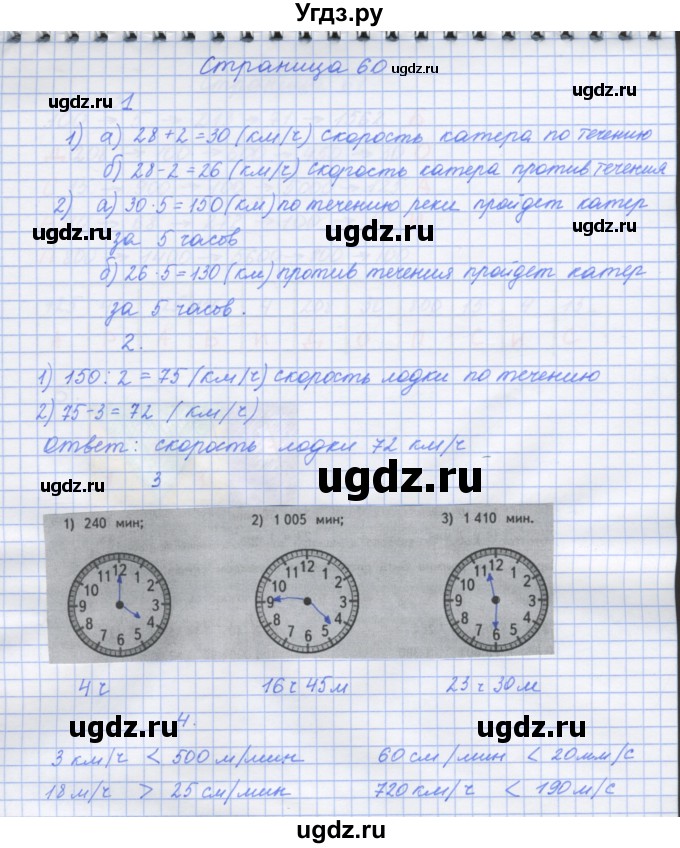 Угдз.ру
Страница 60
ugdz.ru
ugdz.ru
ugdz.ru
1
1) а) 28+2=30 (км/ч) скорость катера по течению
б) 28-2=26 (км/ч) скорость катера против течения
2) а) 30·5=150(км) по течению реки пройдет катер
ugdz.ru
ugdz.ru
ugdz.ru
за 5 часов
б) 26·5=130(км) против течения пройдет катер
за 5 часов.
2.
1) 150:2=75 (км/ч) скорость лодки по течению
2) 75-3=72 (км/ч)
Ответ: скорость лодки 72 км/ч
ugdz.ru
ugdz.ru
ugdz.ru
3
1) 240 мин;
2) 1 005 мин;
3) 1 410 мин.
12 1 2 3 4 5 6 7 8 9 10 11
12 1 2 3 4 5 6 7 8 9 10 11
12 1 2 3 4 5 6 7 8 9 10 11
4ч
16ч 45м
23ч 30м
ugdz.ru
ugdz.ru
ugdz.ru
4.
3 км/ч < 500 м/мин
60 см/мин < 20мм/с
18 м/ч > 25 см/мин
720 км/ч < 190 м/с
ugdz.ru